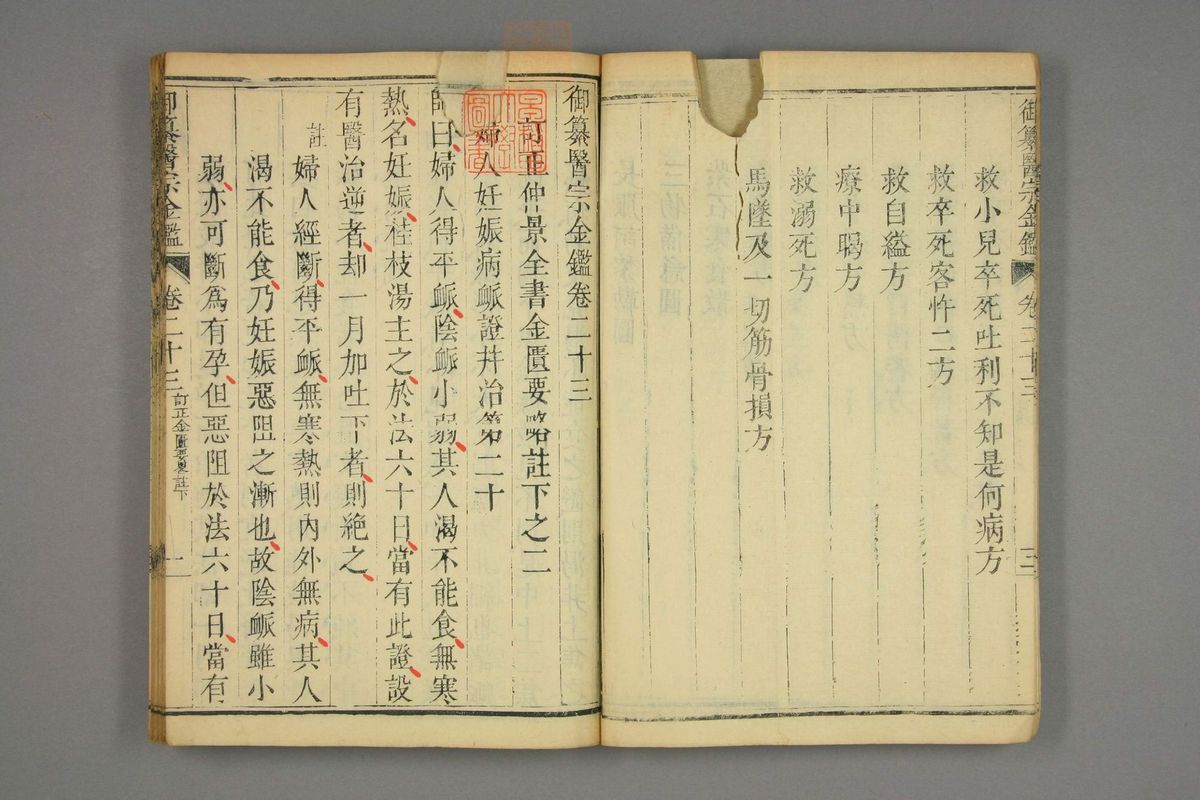 御纂醫宗金鑑 卷二十三 三
救小兒卒死吐利不知是何病方
救卒死客忤二方
救自縊方
療中暍方
救溺死方
馬墜及一切筋骨損方
御纂醫宗金鑑卷二十三
訂正仲景全書金匱要略註下之二
婦人妊娠病脈證幷治第二十
師曰婦人得平脈陰脈小弱其人渴不能食無寒
熱名妊娠桂枝湯主之於法六十日當有此證設
有醫治逆者却一月加吐下者則絕之
註
婦人經斷得平脈無寒熱則內外無病其人
渴不能食乃妊娠惡阻之漸也故陰脈雖小
弱亦可斷爲有孕但惡阻於法六十日當有
御纂醫宗金鑑 卷二十三 訂正金匱要畧註下 一